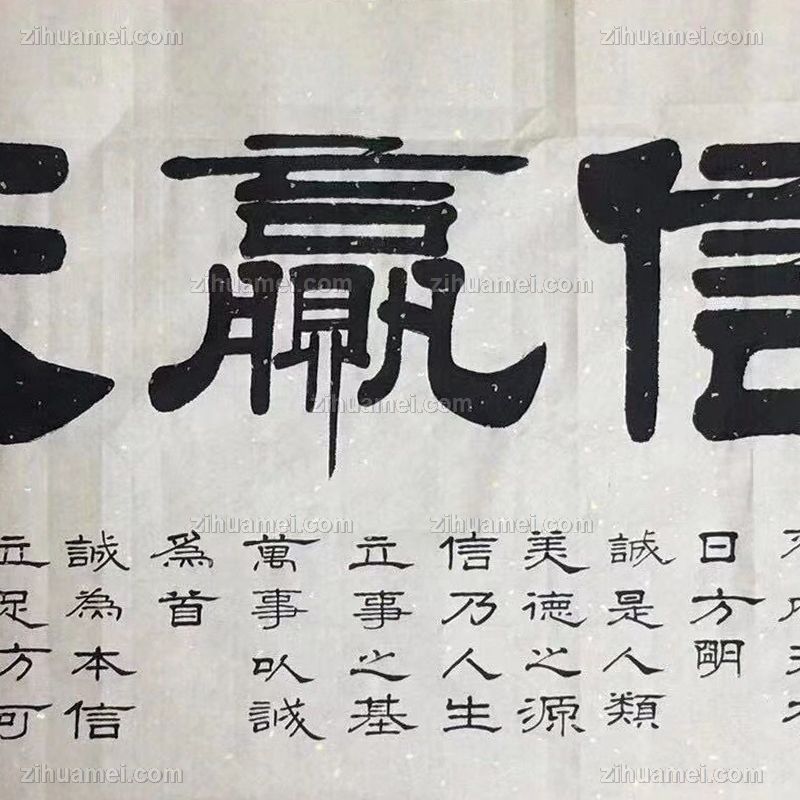 zihuamei.com
zihuamei.com
信
贏
zihuamei.com
zihuamei.com
zihuamei.com
zihuamei.com
zihuamei.com
日方明
誠是人類
美德之源
信乃人生
立事之基
萬事以誠
為首
誠為本信
立足方可
zihuamei.com
zihuamei.com